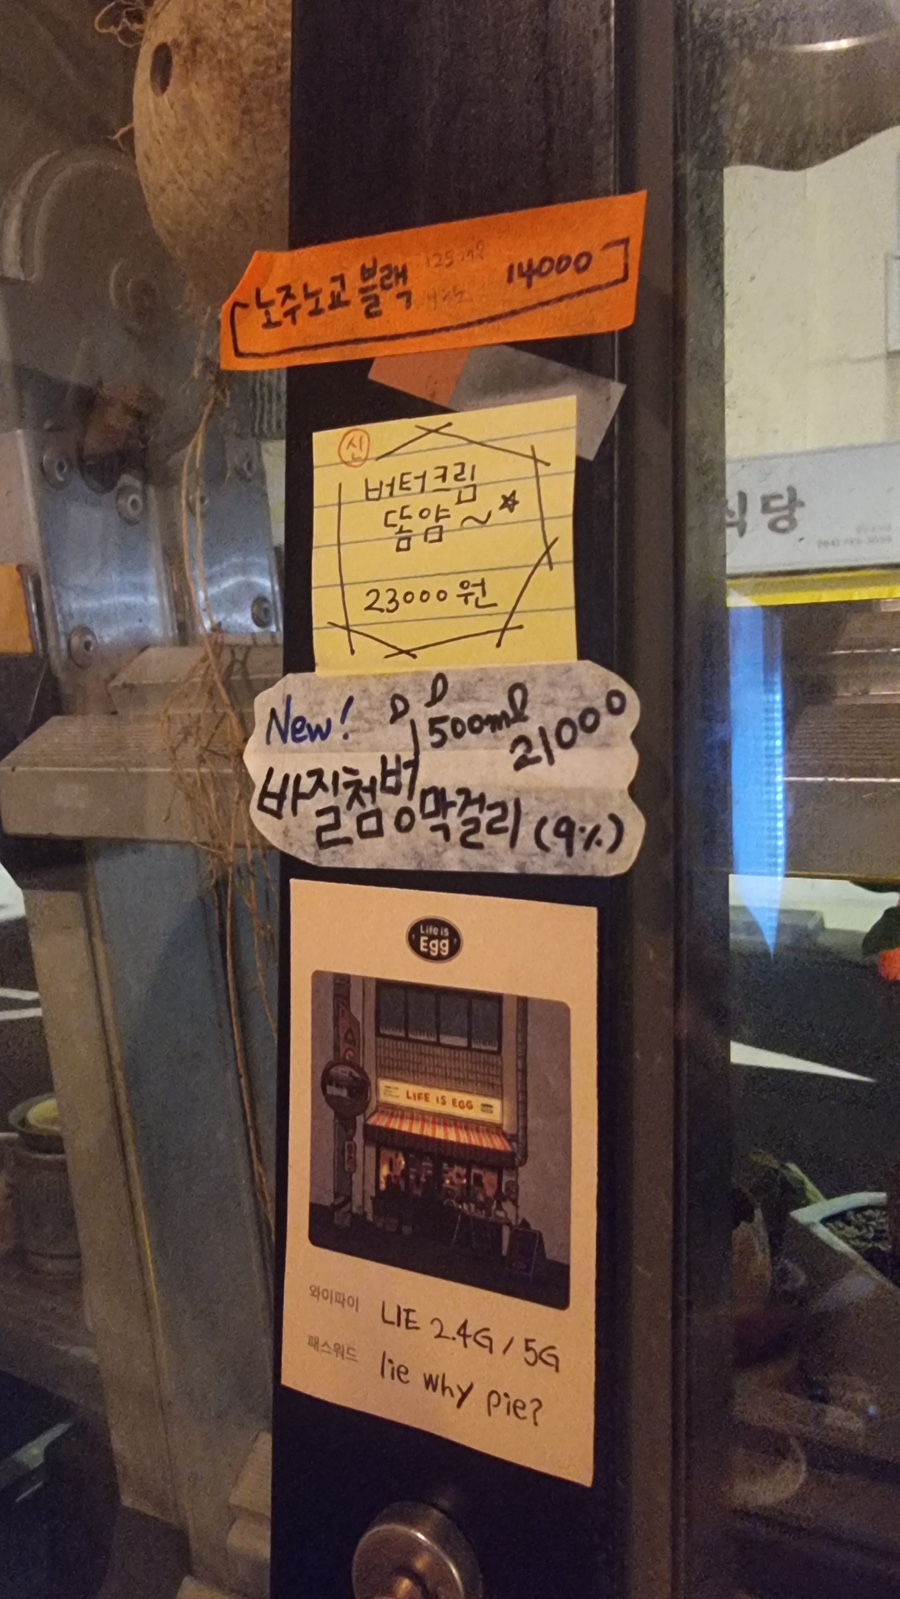 노주노교 블랙 14000
신
버터크림
똠얌~
23000원
New! 500ml 21000
바질첨벙막걸리 (9%)
Life is
Egg
LIFE IS EGG
와이파이 LIE 2.4G / 5G
패스워드 lie why pie?
식당